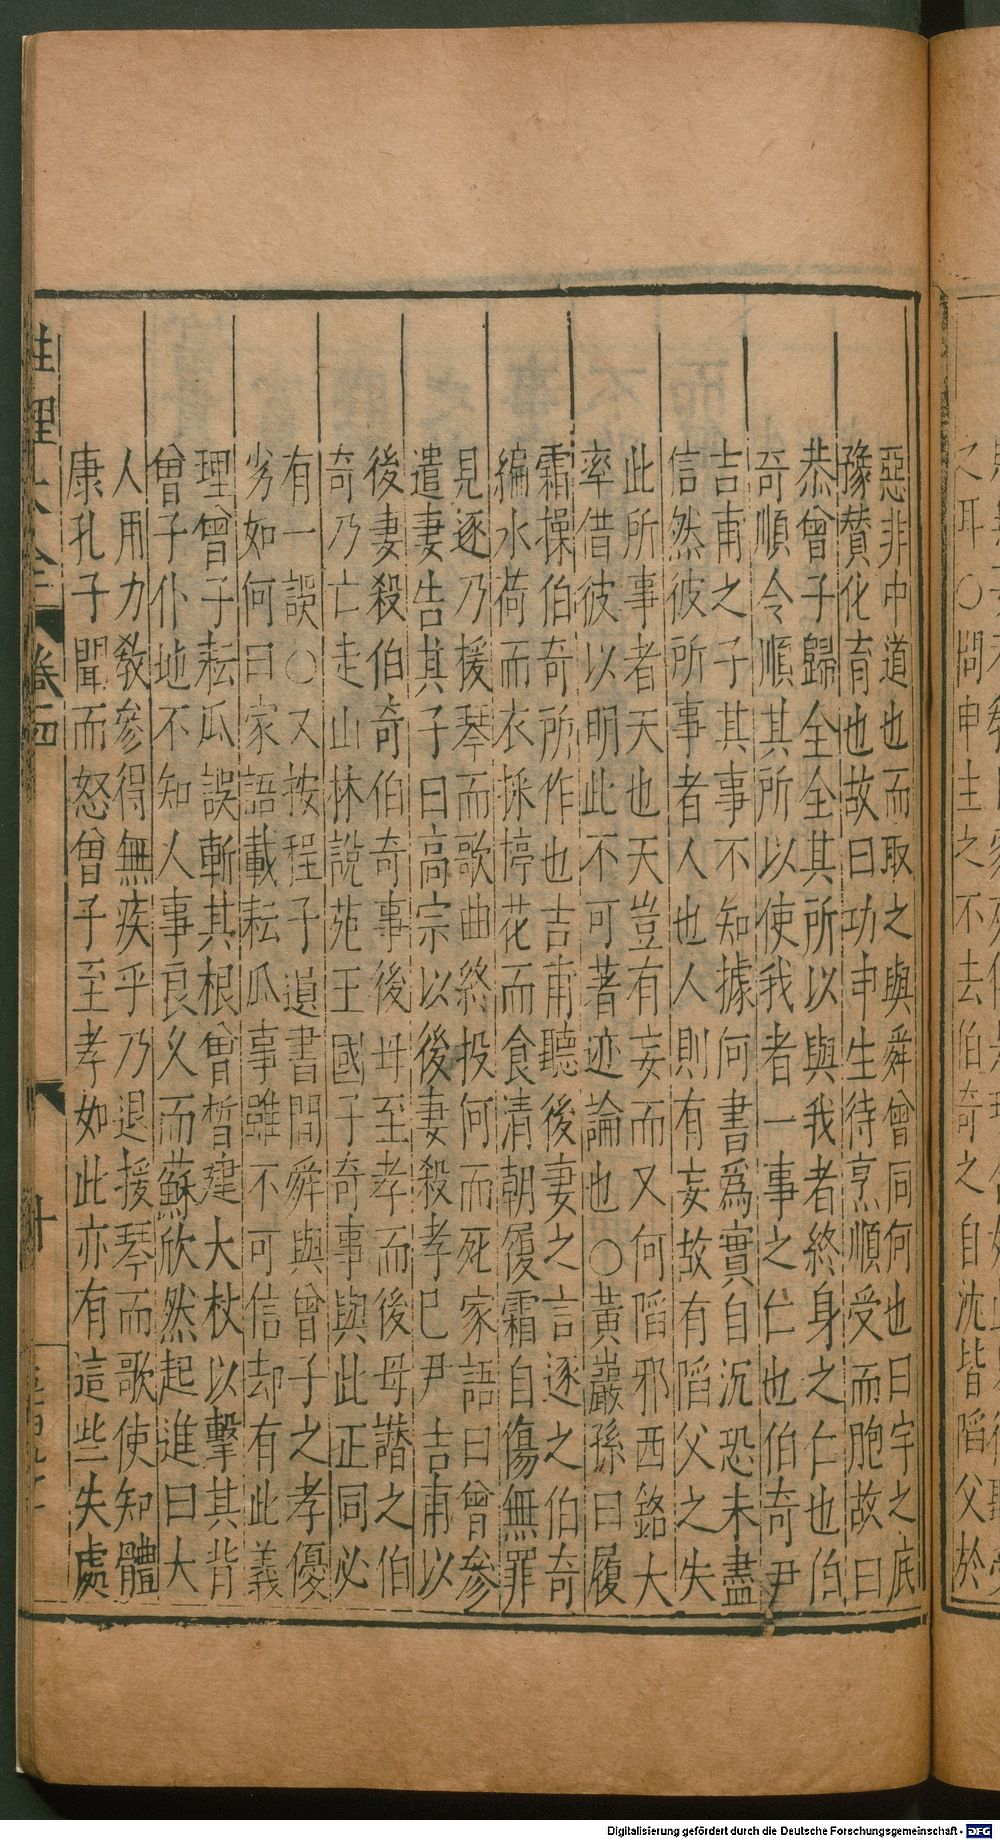 惡非中道也而取之與舜曾同何也曰宇之底
豫贊化育也故曰功申生待烹順受而胞故曰
恭曾子歸全全其所以與我者終身之仁也伯
奇順令順其所以使我者一事之仁也伯奇尹
吉甫之子其事不知據何書爲實自沉恐未盡
信然彼所事者人也人則有妄故有陷父之失
此所事者天也天豈有妄而又何陷邪西銘大
率借彼以明此不可著迹論也○黃巖孫曰履
霜操伯奇所作也吉甫聽後妻之言逐之伯奇
編水荷而衣採楟花而食清朝履霜自傷無罪
見逐乃援琴而歌曲終投何而死家語曰曾參
遣妻告其子曰高宗以後妻殺孝巳尹吉甫以
後妻殺伯奇伯奇事後母至孝而後母譖之伯
奇乃亡走山林說苑王國子奇事與此正同必
有一誤○又按程子遺書問舜與曾子之孝優
劣如何曰家語載耘瓜事雖不可信却有此義
理曾子耘瓜誤斬其根曾晳建大杖以擊其背
曾子仆地不知人事良久而蘇欣然起進曰大
人用力教參得無疾乎乃退援琴而歌使知體
康孔子聞而怒曾子至孝如此亦有這些失處
性理大全 卷四
又耳○問申生之不去伯奇之自沈皆陷父於
Digitalisierung gefördert durch die Deutsche Forschungsgemeinschaft - DFG